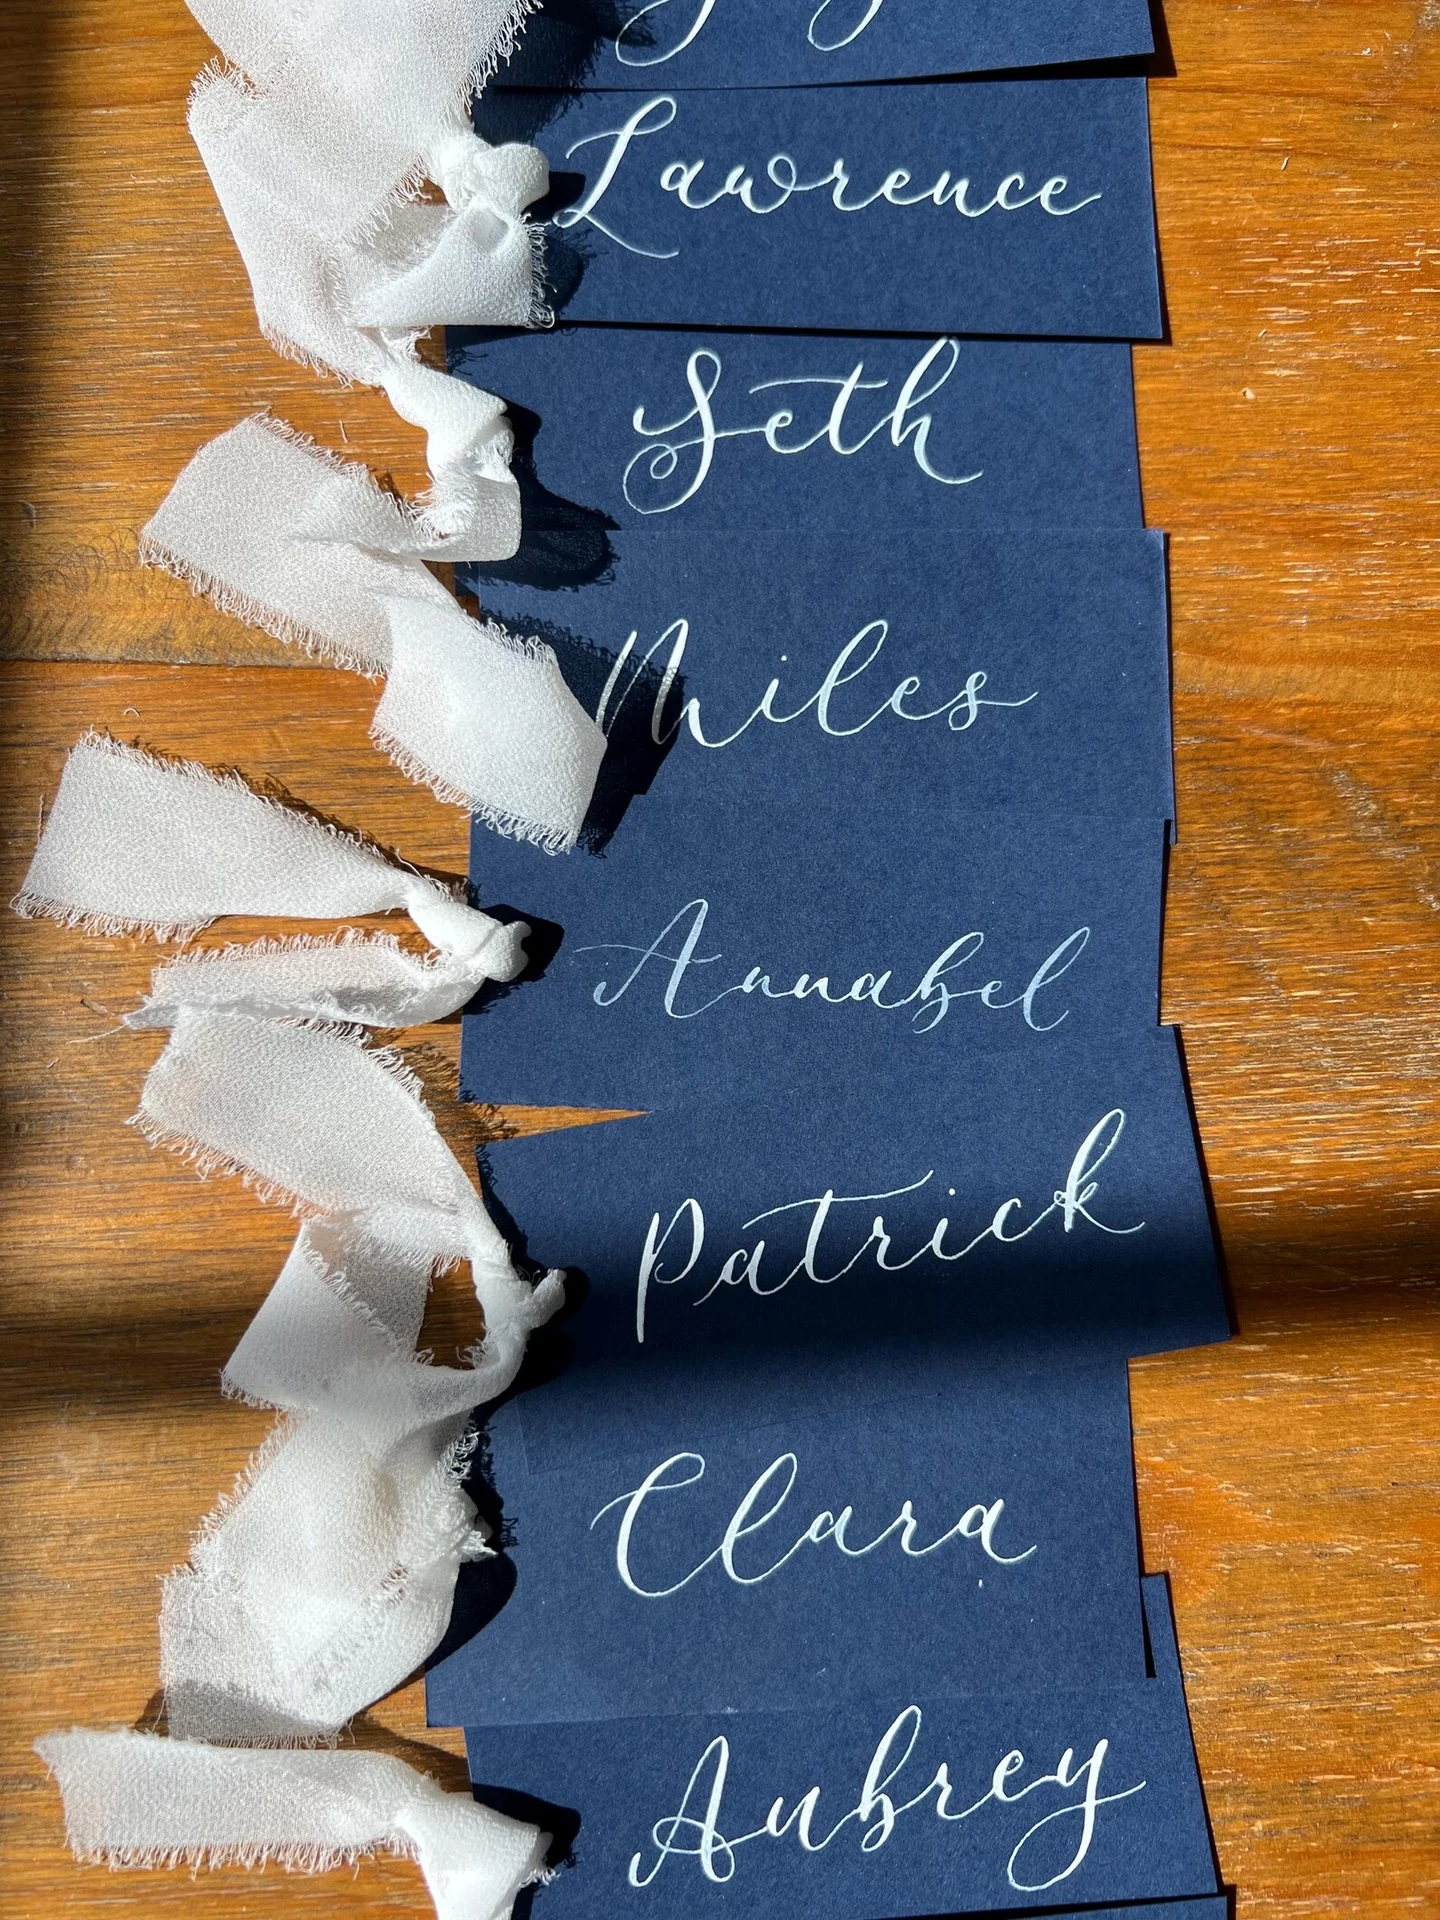 Lawrence
Seth
Miles
Annabel
Patrick
Clara
Aubrey